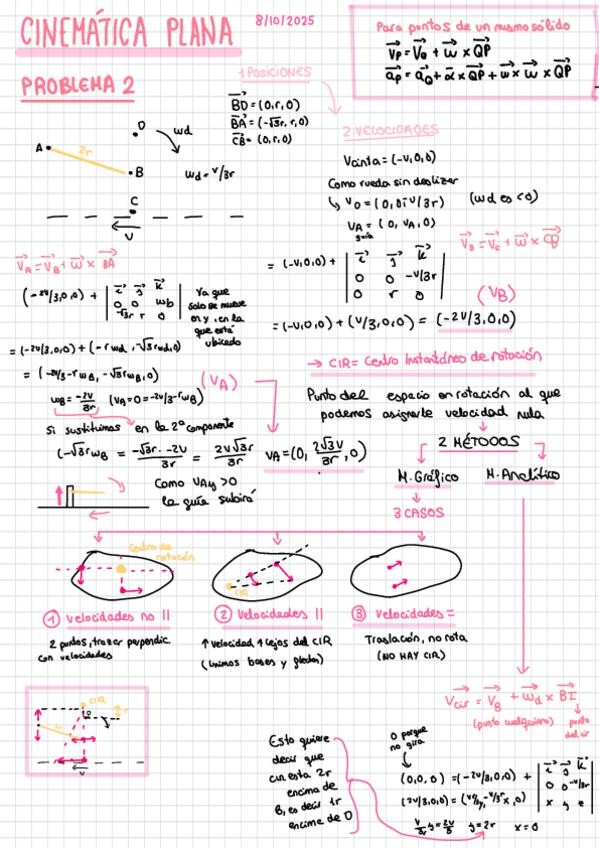 CINEMÁTICA PLANA
8/10/2025
Para puntos de un mismo sólido
Vp = VQ + ω x QP
ap = aQ + α x QP + ω x ω x QP
PROBLEMA 2
1 POSICIONES
BD = (0, r, 0)
BA = (-√3r, r, 0)
CB = (0, r, 0)
A
2r
D
ωd
B
ωd = v/3r
C
V
2. VELOCIDADES
Vcinta = (-v, 0, 0)
Como rueda sin deslizar
(ωd es <0)
VA = (0, VA, 0)
guía
VB = VC + ω x CB
= (-v, 0, 0) +
i j k
0 0 -v/3r
0 r 0
(VB)
= (-v, 0, 0) + (v/3, 0, 0) = (-2v/3, 0, 0)
VA = VB + ω x BA
(-2v/3, 0, 0) +
i j k
0 0 ωb
-√3r r 0
Ya que
solo se mueve
en y, en la
que está
ubicado
= (-2v/3, 0, 0) + (-rωd, -√3rωd, 0)
= (-2v/3 - rωB, -√3rωB, 0)
(VA)
ωB = -2v/3r (VA = 0 = -2v/3 - rωB)
Si sustituimos en la 2ª componente
(-√3rωB = -√3r · -2v/3r = 2v√3r/3r
VA = (0, 2√3v/3r, 0)
Como VAy > 0
la guía subirá
→ CIR = Centro Instantáneo de rotación
Punto del espacio en rotación al que
podemos asignarle velocidad nula
2 MÉTODOS
M. Gráfico
M. Analítico
3 CASOS
Centro de
rotación
CIR
① Velocidades no ||
② Velocidades ||
③ Velocidades =
2 puntos, trazar perpendic.
con velocidades
↑ Velocidad, ↑ lejos del CIR
(Unimos bases y flechas)
Traslación, no rota
(NO HAY CIR)
Vcir = VB + ωd x BI
(punto cualquiera)
punto
del cir
CIR
V
Esto quiere
decir que
cir esta 2r
encima de
B, es decir 1r
encima de D
0 porque
no gira
(0, 0, 0) = (-2v/3, 0, 0) +
i j k
0 0 -v/3r
x y z
(2v/3, 0, 0) = (v/3r y, -v/3r x, 0)
v/3r y = 2v/3 y = 2r x = 0